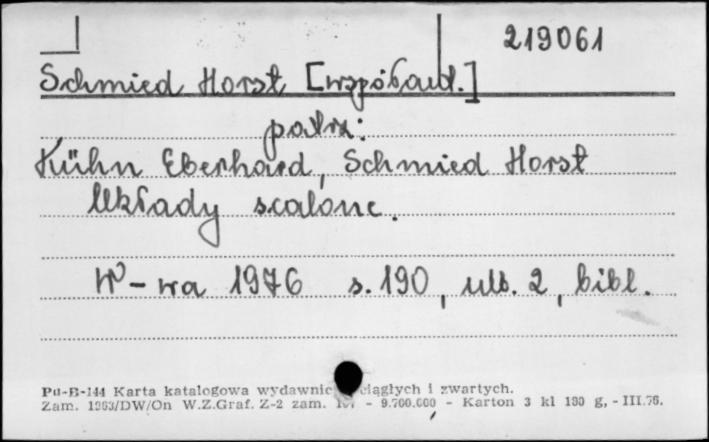 219061
Schmied Horst [współaut.]
patrz:
Kühn Eberhard, Schmied Horst
Układy scalone.
W-wa 1976 s. 190, ulb. 2, bibl.
Pu-B-144 Karta katalogowa wydawnic ciągłych i zwartych.
Zam. 1963/DW/On W.Z.Graf. Z-2 zam. - 9.700.000 - Karton 3 kl 180 g, - III.76.